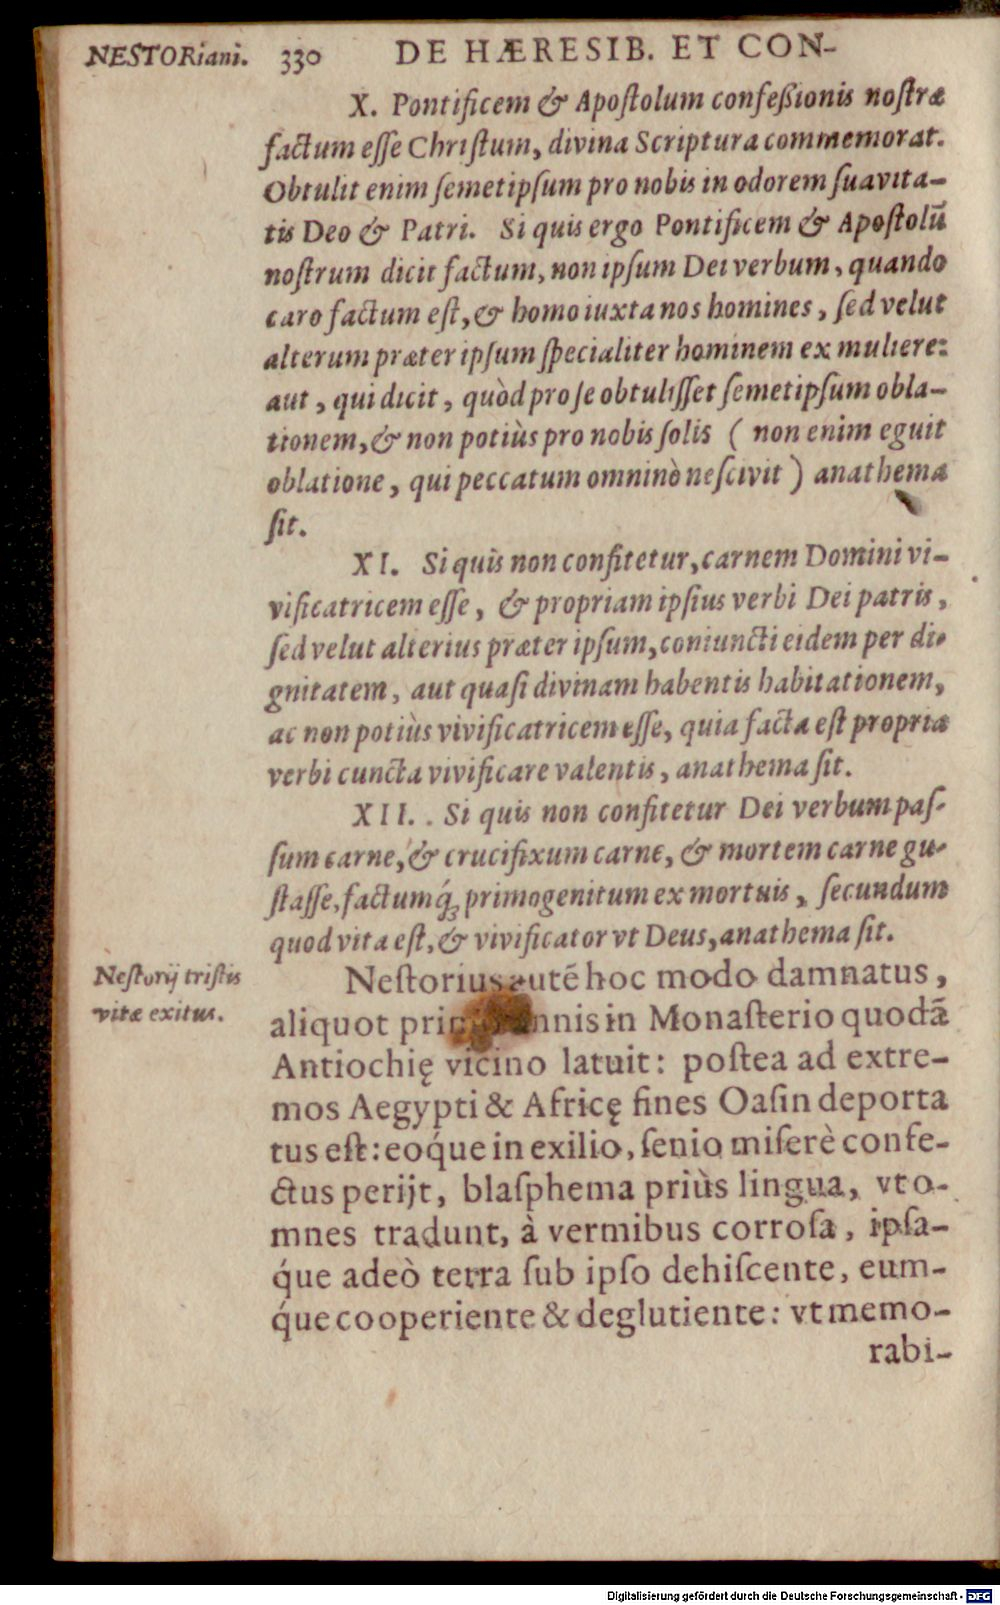 NESTORiani. 330 DE HÆRESIB. ET CON-
X. Pontificem & Apoſtolum confeßionis noſtræ
factum eſſe Chriſtum, divina Scriptura commemorat.
Obtulit enim ſemetipſum pro nobis in odorem ſuavita-
tis Deo & Patri. Si quis ergo Pontificem & Apoſtolũ
noſtrum dicit factum, non ipſum Dei verbum, quando
caro factum eſt, & homo iuxta nos homines, ſed velut
alterum præter ipſum ſpecialiter hominem ex muliere:
aut, qui dicit, quòd pro ſe obtuliſſet ſemetipſum obla-
tionem, & non potiùs pro nobis ſolis ( non enim eguit
oblatione, qui peccatum omninò neſcivit ) anathema
ſit.
XI. Si quis non confitetur, carnem Domini vi-
vificatricem eſſe, & propriam ipſius verbi Dei patris,
ſed velut alterius præter ipſum, coniuncti eidem per di-
gnitatem, aut quaſi divinam habentis habitationem,
ac non potiùs vivificatricem eſſe, quia facta eſt propria
verbi cuncta vivificare valentis, anathema ſit.
XII. . Si quis non confitetur Dei verbum paſ-
ſum carne, & crucifixum carne, & mortem carne gu-
ſtaſſe, factumq́; primogenitum ex mortuis, ſecundum
quod vita eſt, & vivificator vt Deus, anathema ſit.
Neſtorij triſtis
vitæ exitus.
Neſtorius autẽ hoc modo damnatus,
aliquot annis in Monaſterio quodã
Antiochię vicino latuit: poſtea ad extre-
mos Aegypti & Africę fines Oaſin deporta
tus eſt: eoq́ue in exilio, ſenio miſerè confe-
ctus perijt, blaſphema priùs lingua, vt o-
mnes tradunt, à vermibus corroſa, ipſa-
q́ue adeò terra ſub ipſo dehiſcente, eum-
q́ue cooperiente & deglutiente: vt memo-
rabi-
Digitalisierung gefördert durch die Deutsche Forschungsgemeinschaft - DFG